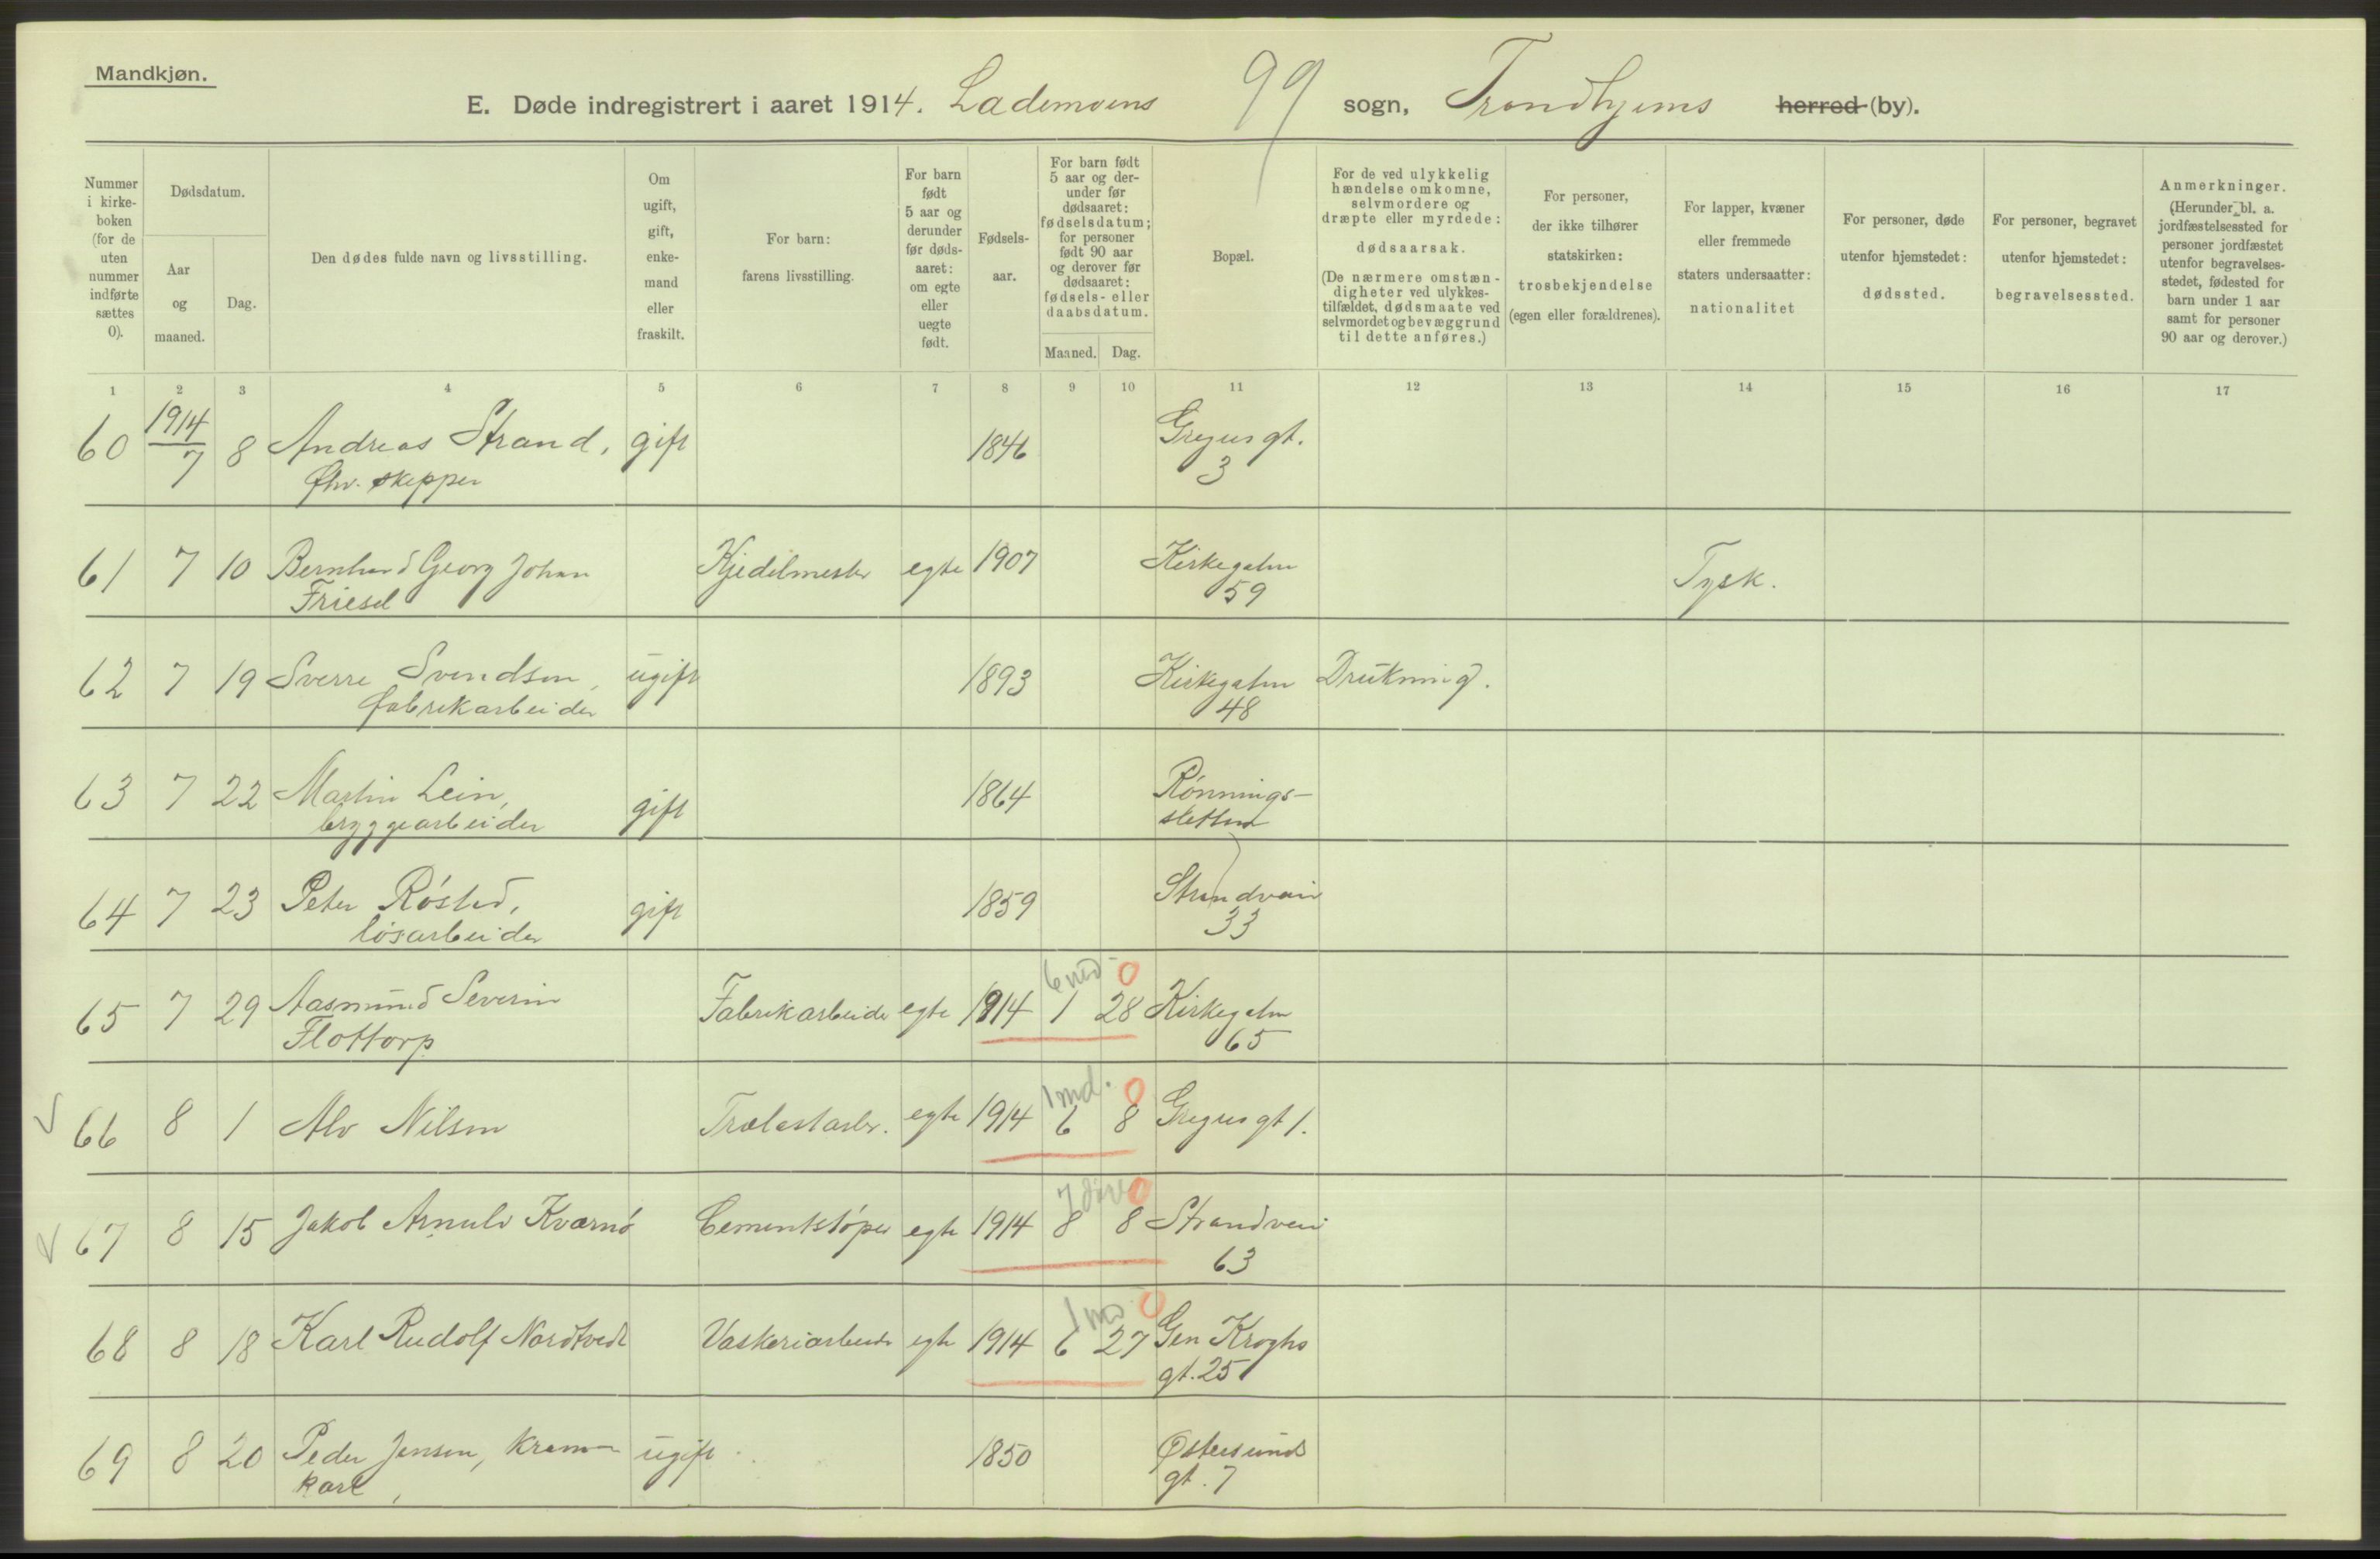 Mandkjøn.
E. Døde indregistrert i aaret 1914. Lademoens 99 sogn, Trondhjems herred (by).
Nummer i kirkeboken (for de uten nummer indførte sættes 0).
Dødsdatum.
Aar og maaned.
Dag.
Den dødes fulde navn og livsstilling.
Om ugift, gift, enkemand eller fraskilt.
For barn: farens livsstilling.
For barn født 5 aar og derunder før dødsaaret: om egte eller uegte født.
Fødselsaar.
For barn født 5 aar og derunder før dødsaaret: fødselsdatum; for personer født 90 aar og derover før dødsaaret: fødsels- eller daabsdatum.
Maaned. Dag.
Bopæl.
For de ved ulykkelig hændelse omkomne, selvmordere og dræpte eller myrdede: dødsaarsak. (De nærmere omstændigheter ved ulykkestilfældet, dødsmaate ved selvmordet og bevæggrund til dette anføres.)
For personer, der ikke tilhører statskirken: trosbekjendelse (egen eller forældrenes).
For lapper, kvæner eller fremmede staters undersaatter: nationalitet
For personer, døde utenfor hjemstedet: dødssted.
For personer, begravet utenfor hjemstedet: begravelsessted.
Anmerkninger. (Herunder bl. a. jordfæstelsessted for personer jordfæstet utenfor begravelsesstedet, fødested for barn under 1 aar samt for personer 90 aar og derover.)
1 2 3 4 5 6 7 8 9 10 11 12 13 14 15 16 17
60 1914 7 8 Andreas Strand, gift 1846 Gregus gt.
fhv. skipper 3
61 7 10 Bernhard Georg Johan Kjedelmester egte 1907 Kirkegaten Tysk.
Friesel 59
62 7 19 Sverre Svendsen, ugift 1893 Kirkegaten Drukning.
fabrikarbeider 48
63 7 22 Martin Lein, gift 1864 Rønnings-
bryggearbeider sletten
64 7 23 Peter Røsted, gift 1859 Strandvein
løsarbeider 33
6 md 0
65 7 29 Aasmund Severin Fabrikarbeider egte 1914 1 28 Kirkegaten
Flottorp 65
1 md. 0
V 66 8 1 Alv Nilsen Trælastarb. egte 1914 6 8 Gregus gt 1.
7 0
V 67 8 15 Jakob Arnulv Kværnø Cementstøper egte 1914 8 8 Strandvein
63
1 md 0
68 8 18 Karl Rudolf Nordtvedt Vaskeriarbeider egte 1914 6 27 Gen Kroghs
gt. 25
69 8 20 Peder Jensen, kram- ugift 1850 Østersunds
kar gt. 7